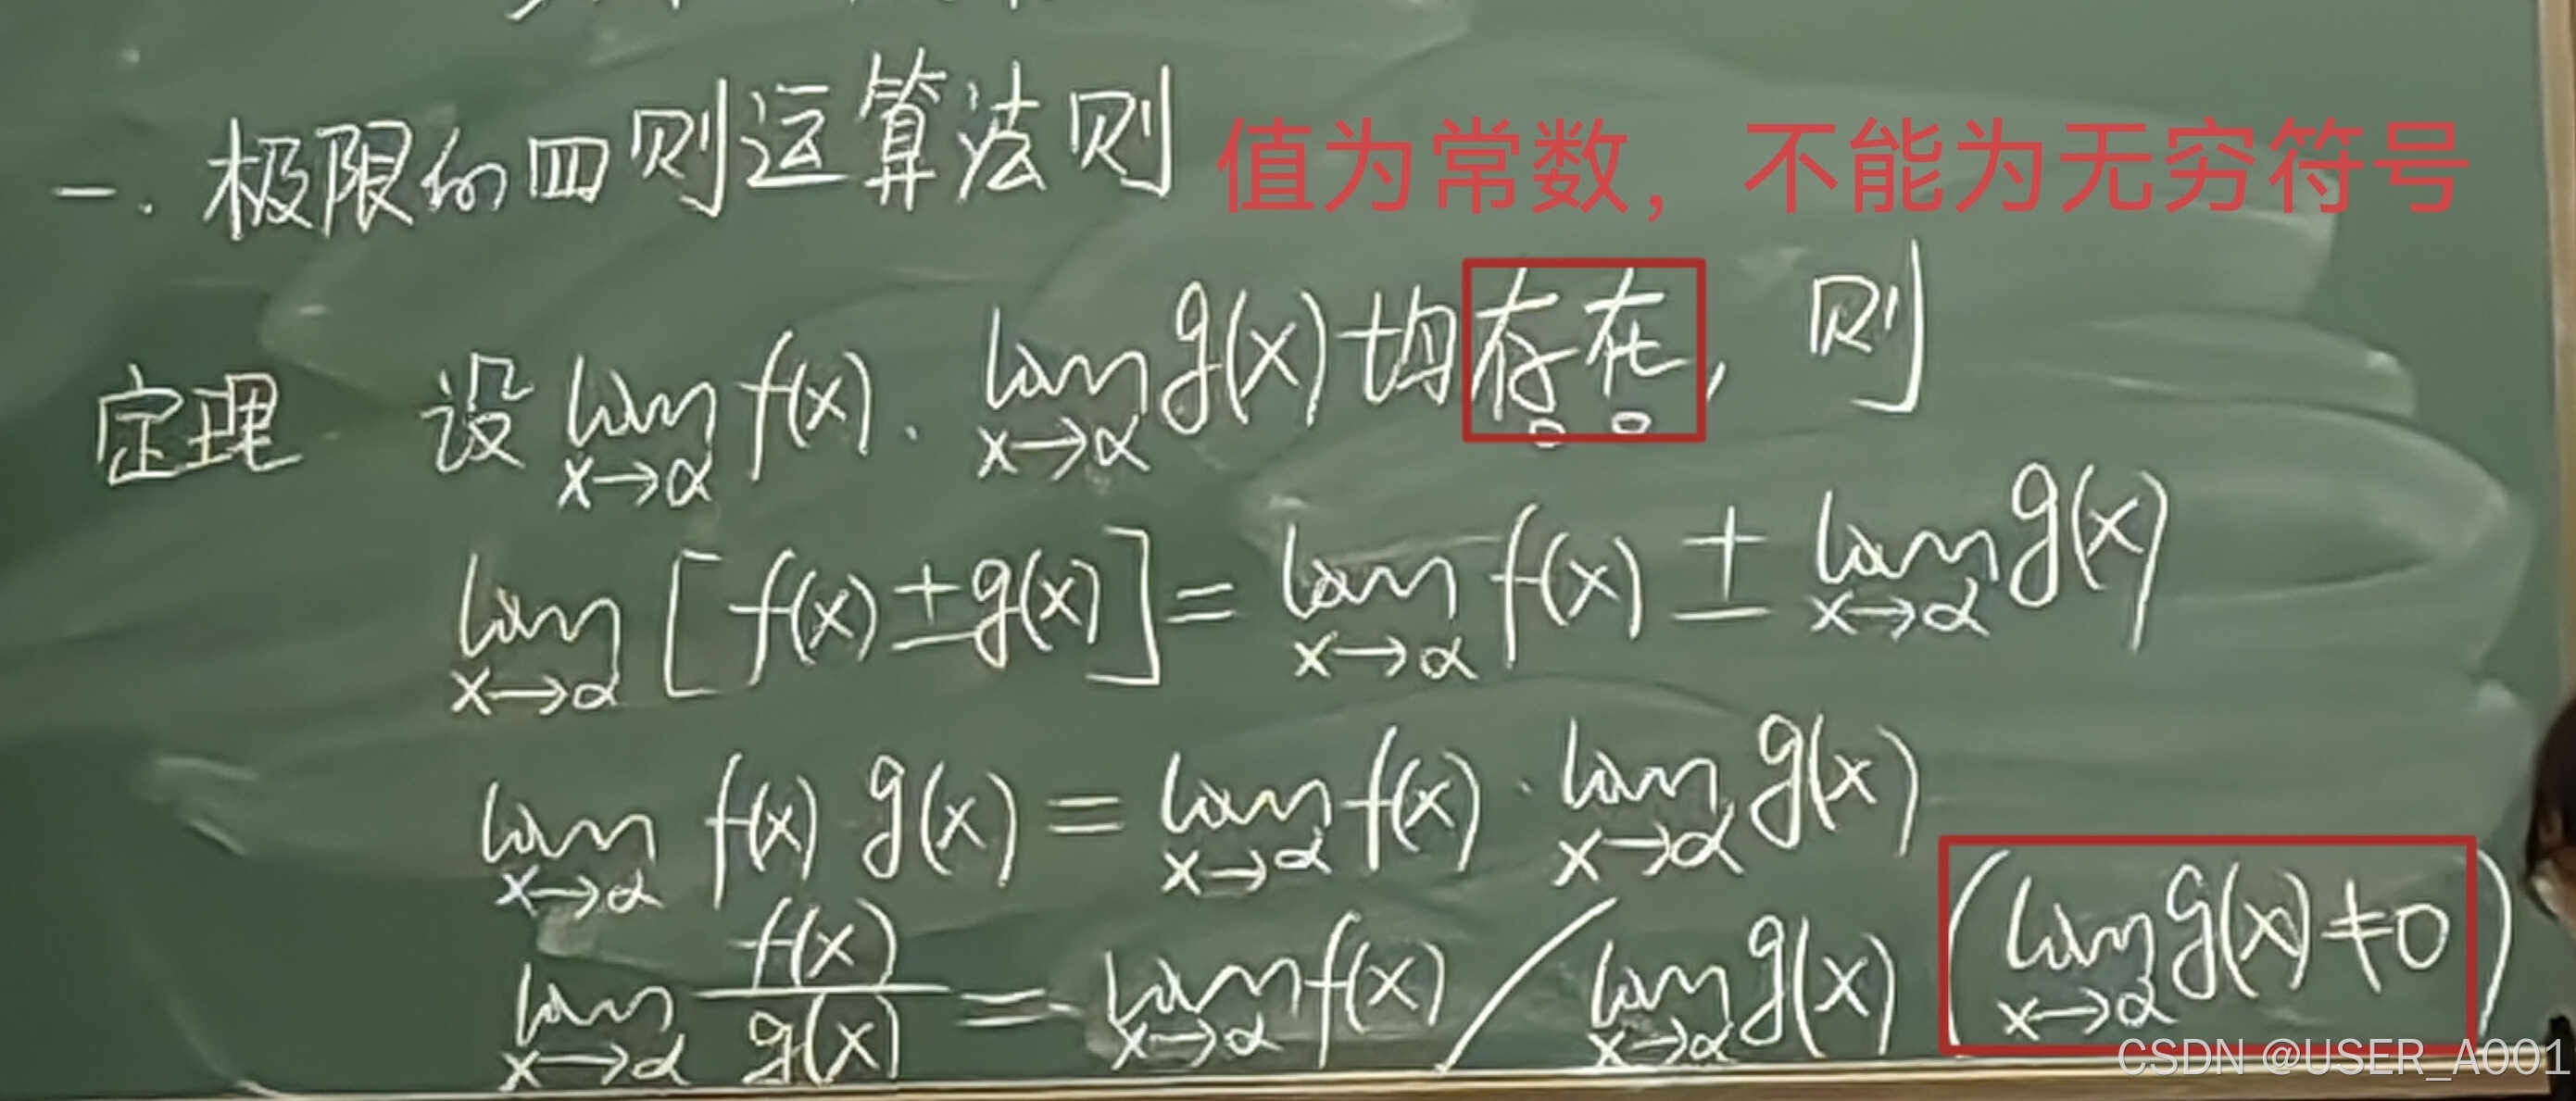 一. 极限的四则运算法则 值为常数，不能为无穷符号
定理 设 lim x→α f(x). lim x→α g(x) 均存在, 则
lim x→α [f(x)±g(x)] = lim x→α f(x) ± lim x→α g(x)
lim x→α f(x) g(x) = lim x→α f(x) · lim x→α g(x)
lim x→α f(x)/g(x) = lim x→α f(x) / lim x→α g(x) (lim x→α g(x)≠0)
CSDN @USER_A001